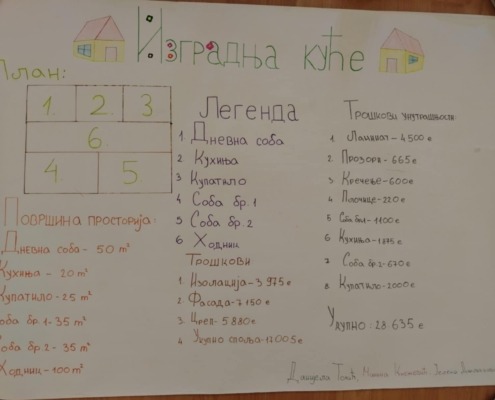 Изградња куће
План:
1. 2. 3
6.
4 5
Површина просторија:
Дневна соба - 50 m²
Кухиња - 20 m²
Купатило - 25 m²
оба бр.1 - 35 m²
оба бр.2 - 35 m²
Ходник - 100 m²
Легенда
1 Дневна соба
2 Кухиња
3 Купатило
4 Соба бр. 1
5 Соба бр. 2
6 Ходник
Трошкови
1. Изолација - 3 975 е
2. Фасада - 7 150 е
3. Цреп - 5 880 е
4 Укупно споља - 17 005 е
Трошкови унутрашњости:
1. Ламинат - 4 500 е
2. Прозори - 665 е
3. Кречење - 600 е
4 Плочице - 220 е
5 1100 е
6 Кухиња - 1 875 е
7 Соба бр.2 - 670 е
8. Купатило - 2000 е
Укупно : 28. 635 е
Данијела